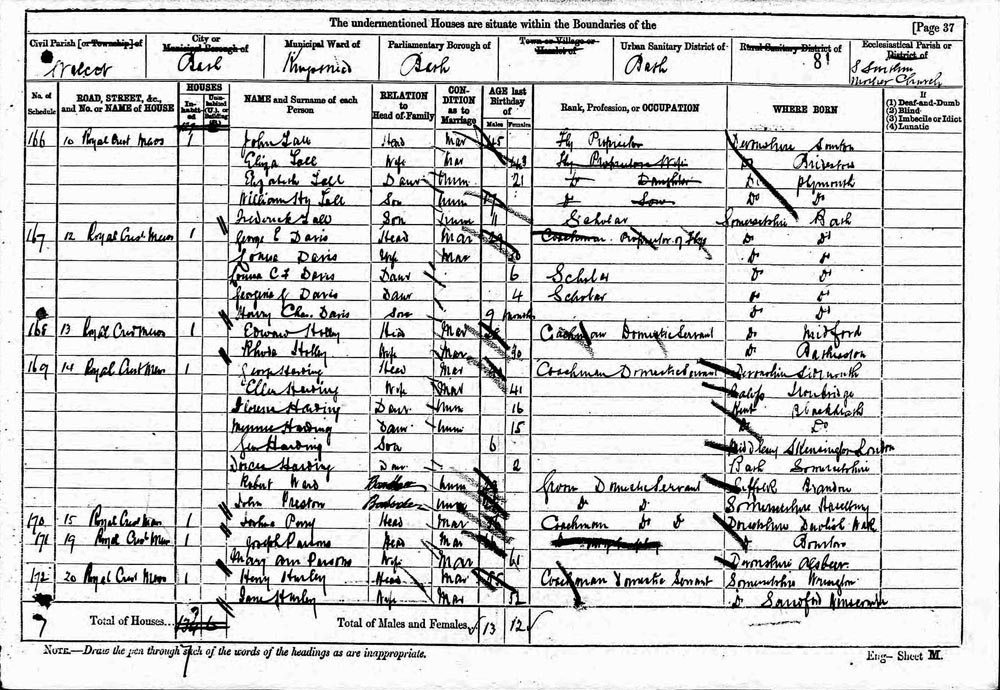 The undermentioned Houses are situate within the Boundaries of the [Page 37
Civil Parish [or Township] of City or Municipal Borough of Municipal Ward of Parliamentary Borough of Town or Village or Hamlet of Urban Sanitary District of Rural Sanitary District of Ecclesiastical Parish or District of
Walcot Bath Bath Bath 81
Mother Church
No. of Schedule ROAD, STREET, &c., and No. or NAME of HOUSE HOUSES Inhabited Uninhabited (U.), or Building (B.) NAME and Surname of each Person RELATION to Head of Family CONDITION as to Marriage AGE last Birthday of Males Females Rank, Profession, or OCCUPATION WHERE BORN If (1) Deaf-and-Dumb (2) Blind (3) Imbecile or Idiot (4) Lunatic
166 10 Royal Crest Mews 1 John Tall Head Mar 45 Fly Proprietor Devonshire
Eliza Tall Wife Mar 43 Fly Proprietors Wife Do
Elizabeth Tall Daur Unm 21 Do Daughter Do Plymouth
William Hy Tall Son Unm 17 Do Son Do Do
Frederick Tall Son Unm 11 Scholar Somersetshire Bath
167 12 Royal Crest Mews 1 George E Davis Head Mar Coachman Proprietor of Flys Do Do
Louisa Davis Wife Mar 30 Do Do
Louisa C F Davis Daur 6 Scholar Do Do
Georgina G Davis Daur 4 Scholar Do Do
Henry Chas. Davis Son 9 months Do Do
168 13 Royal Crest Mews 1 Edward Holley Head Mar Coachman Domestic Servant Do Midford
Rhoda Holley Wife Mar 30 Do Batheaston
169 14 Royal Crest Mews 1 George Harding Head Mar Coachman Domestic Servant Devonshire Sidmouth
Ellen Harding Wife Mar 41 Salop Ironbridge
Harding Daur Unm 16 Kent Blackheath
Minnie Harding Daur Unm 15 Do Do
Geo Harding Son 6 Middlesex S Kensington London
Dorcas Harding Daur 2 Bath Somersetshire
Robert Ward Boarder Unm Groom Domestic Servant Suffolk Brandon
John Preston Boarder Unm Do Do Somersetshire
170 15 Royal Crest Mews 1 Joshua Perry Head Mar Coachman Do Do Devonshire
171 19 Royal Crest Mews 1 Joseph Parsons Head Mar Do
Mary Ann Parsons Wife Mar 61 Devonshire
172 20 Royal Crest Mews 1 Henry Hurley Head Mar 55 Coachman Domestic Servant Somersetshire Wrington
Jane Hurley Wife Mar 52 Do Sandford Winscombe
7 Total of Houses... Total of Males and Females.. 13 12
NOTE.—Draw the pen through such of the words of the headings as are inappropriate. Eng— Sheet M.
7